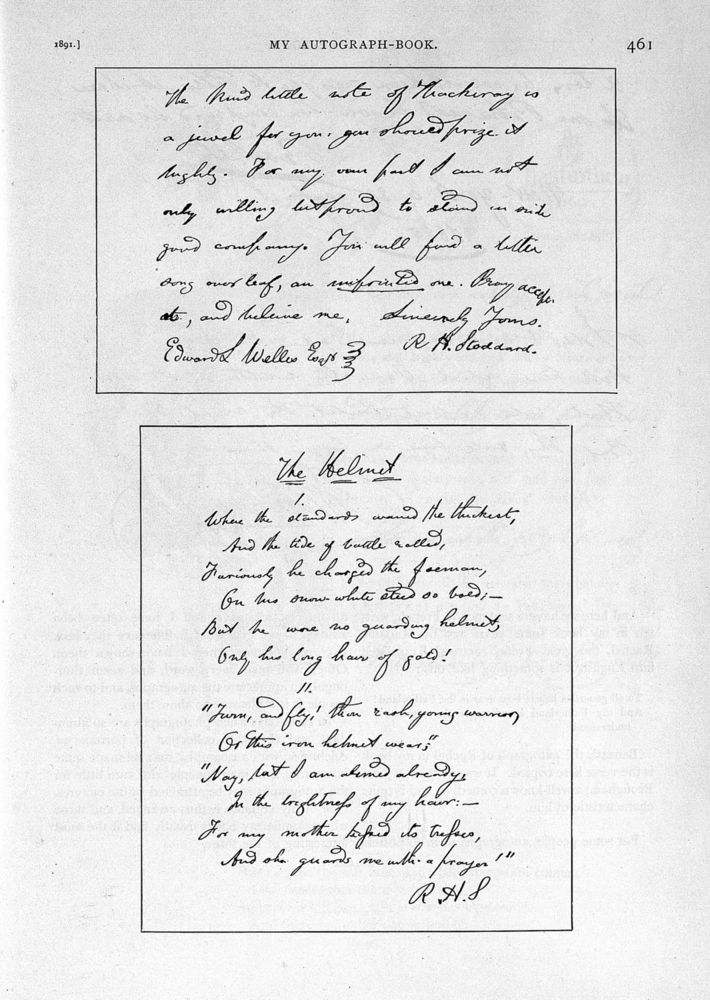 1891.]
MY AUTOGRAPH-BOOK.
461
The kind little note of Thackeray is
a jewel for you: you should prize it
highly. For my own part I am not
only willing but proud to stand in such
good company. You will find a little
song over leaf, an unprinted one. Pray accept
it, and believe me, Sincerely Yours.
R. H. Stoddard.
Edward S Welles Esqr
The Helmet
I.
Where the standards waved the thickest,
And the tide of battle rolled,
Furiously he charged the foeman,
On his snow-white steed so bold;—
But he wore no guarding helmet,
Only his long hair of gold!
II.
"Turn, and fly! thou rash, young warrior,
Or this iron helmet wear;"
"Nay, but I am armed already,
In the brightness of my hair:—
For my mother kissed its tresses,
And she guards me with a prayer!"
R. H. S